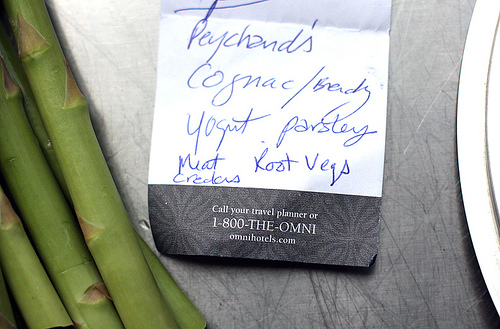 Peychaud's
Cognac/Brandy
Yogurt parsley
Meat Root Vegs
Crackers
Call your travel planner or
1-800-THE-OMNI
omnihotels.com